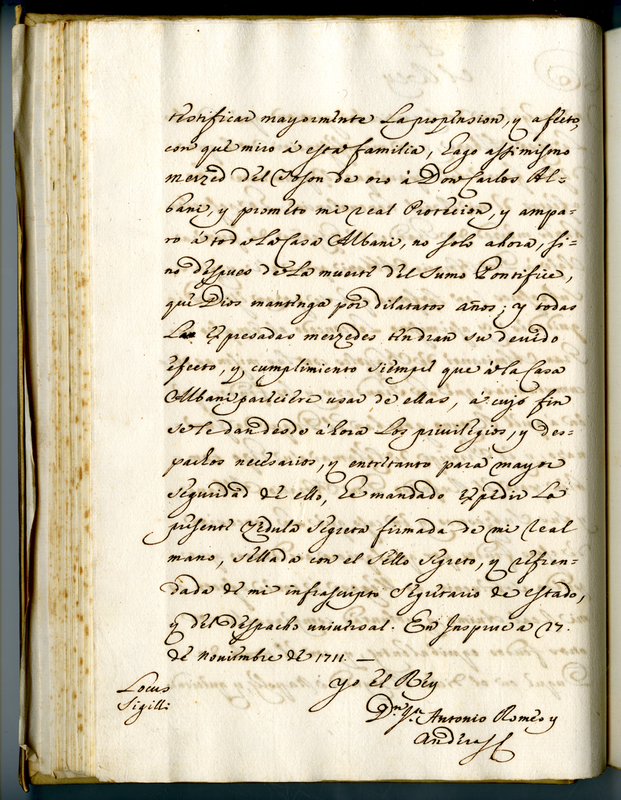 testificar mayormente la propension, y afecto,
con que miro á esta familia, hago assimismo
merzed del Toson de oro á Don Carlos Al=
bani, y prometo mi real Protecion, y ampa=
ro á toda la Casa Albani, no solo ahora, si=
no despues de la muerte del Sumo Pontifice,
que Dios mantenga por dilatatos años; y todas
las expresadas merzedes tendran su devido
efecto, y cumplimiento siempre que á la Casa
Albani pareciere usar de ellas, á cujo fin
se le dan desde áhora los privilegios, y des=
pachos necesarios, y entretanto para mayor
seguridad de ello, he mandado expedir la
presente Zedula segreta firmada de mi real
mano, sellada con el sello segreto, y refren=
dada de mi infrascripto Segretario de estado,
y del despacho universal. En Inspruc a 17.
de noviembre de 1711. —
Yo el Rey
Locus
Sigilli
Dⁿ Jⁿ Antonio Romeo y
Anderaz